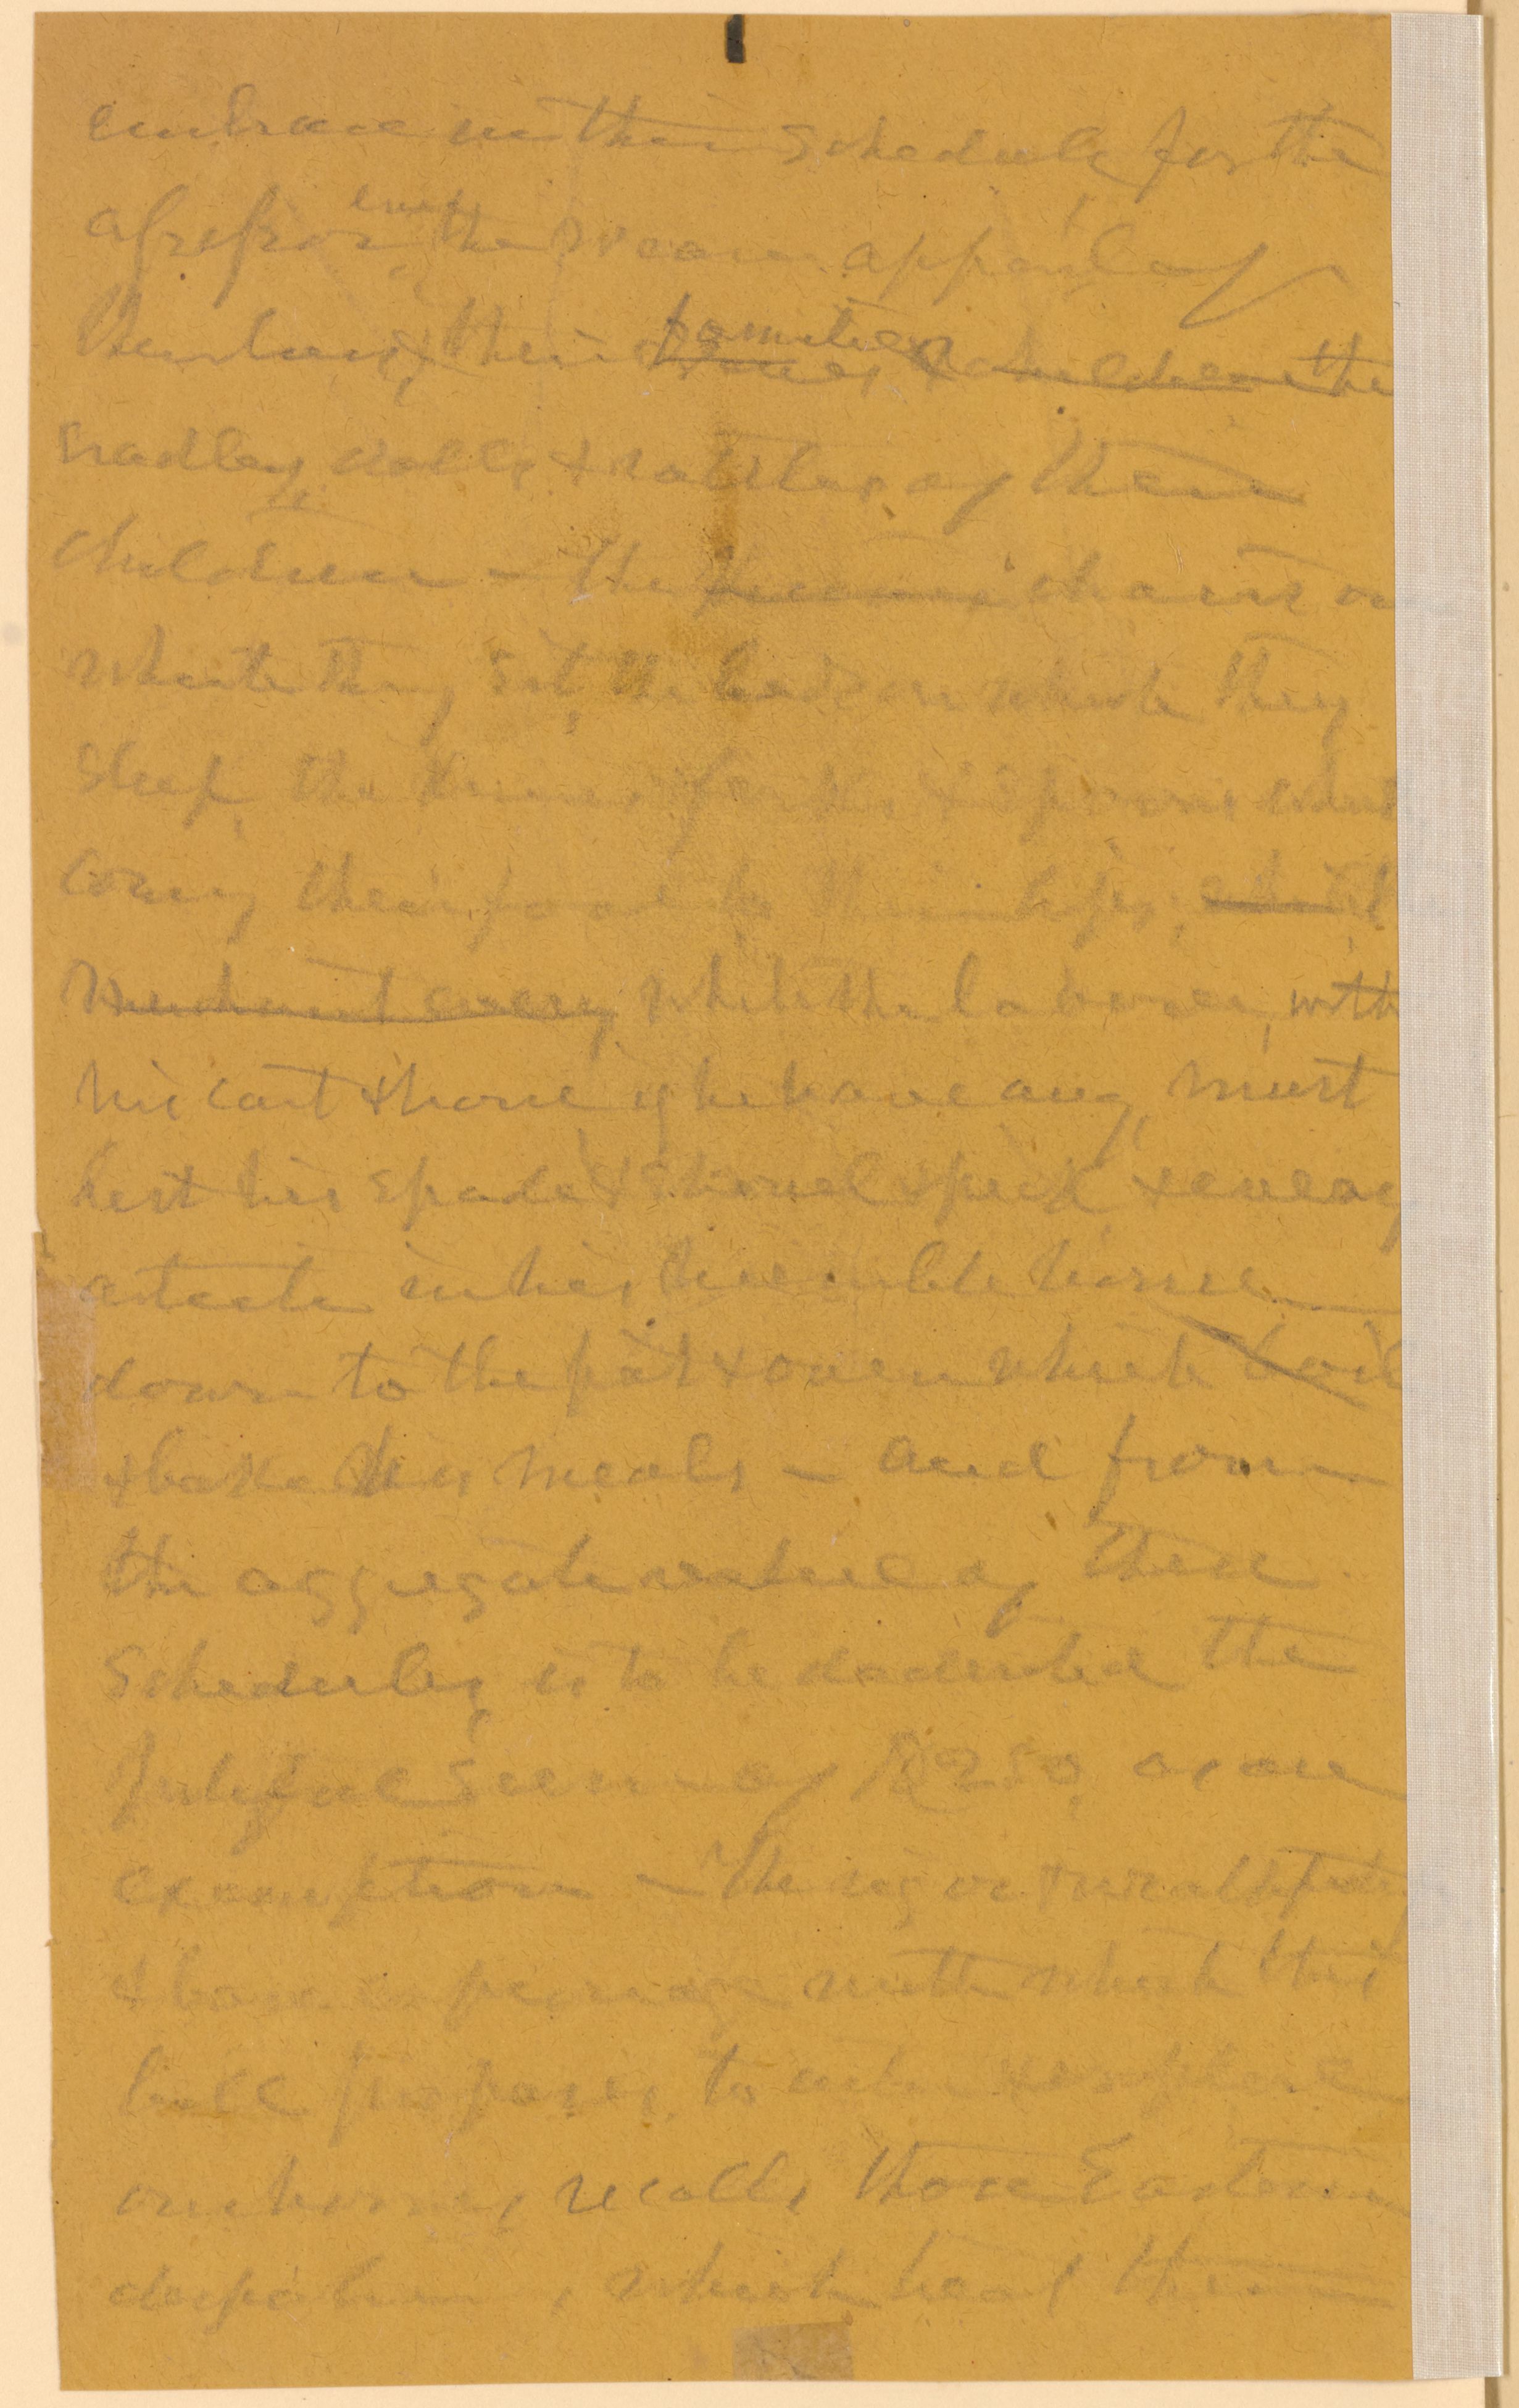 embrace in their schedule for the
assessor even the wearing apparel of
themselves & their families wives & children the
cradles, dolls & rattles of their
children - the chairs on
which they sit, the beds on which they
sleep, the knives forks & spoons which
carry their food to their lips,
merchant every while the laborer, with
his cart & horse if he have any, must
list his spade & shovel & pick, & every
article in his humble home
down to the pot & oven which boil
& bake his meals - and from
the aggregate value of these
schedules is to be deducted the
pitiful sum of $250, as an
exemption - The rigor
& with which this
bill proposes to enter & explore
our homes, recalls those Eastern
despotisms, which had their